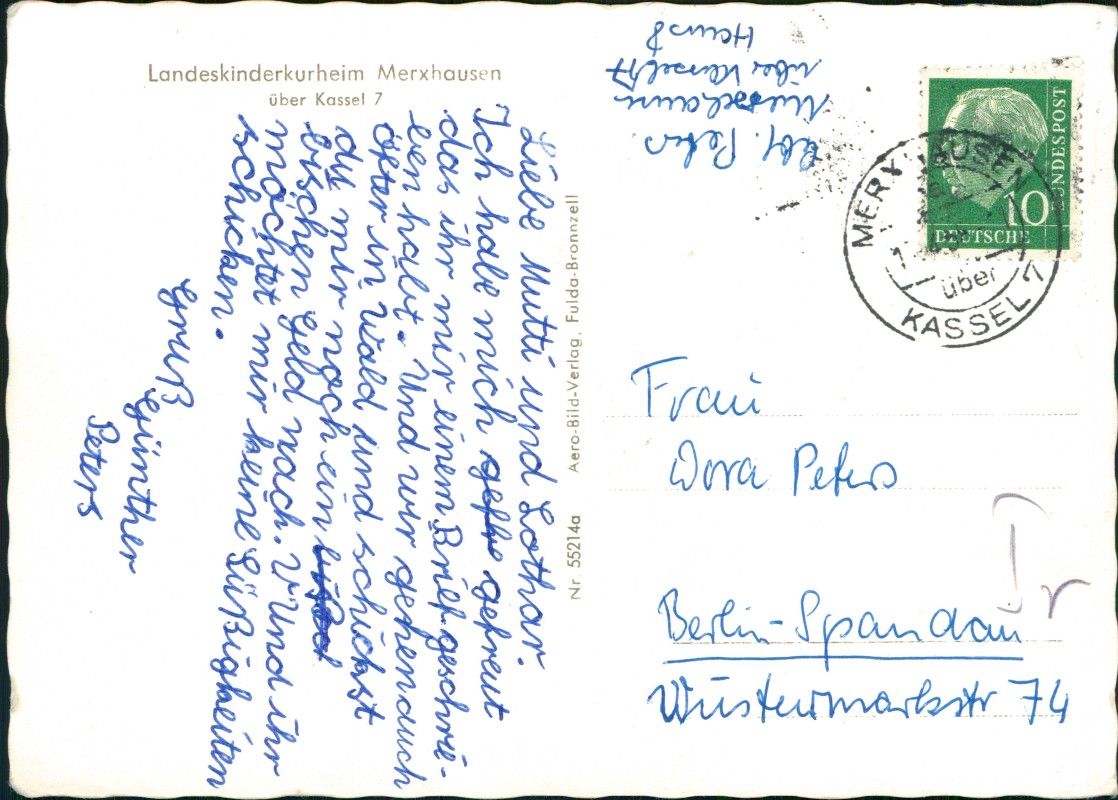 Landeskinderkurheim Merxhausen
über Kassel 7
Liebe Mutti und Lothar.
Ich habe mich gefreut
das ihr mir einem Brief geschrie-
ben habt. Und wir gehen auch
öfter in Wald und schickst
du mir noch ein
bischen Geld nach. Und ihr
möchtet mir keine Süßigkeiten
schicken.
Gruß
Günther
Peters
Nr. 55214a Aero-Bild-Verlag, Fulda-Bronnzell
Abs. Peters
Merxhausen
über Kassel 7
Haus 8
DEUTSCHE
BUNDESPOST
10
MERXHAUSEN
über
KASSEL 7
Frau
Dora Peters
Berlin-Spandau
Wustermarkstr 74